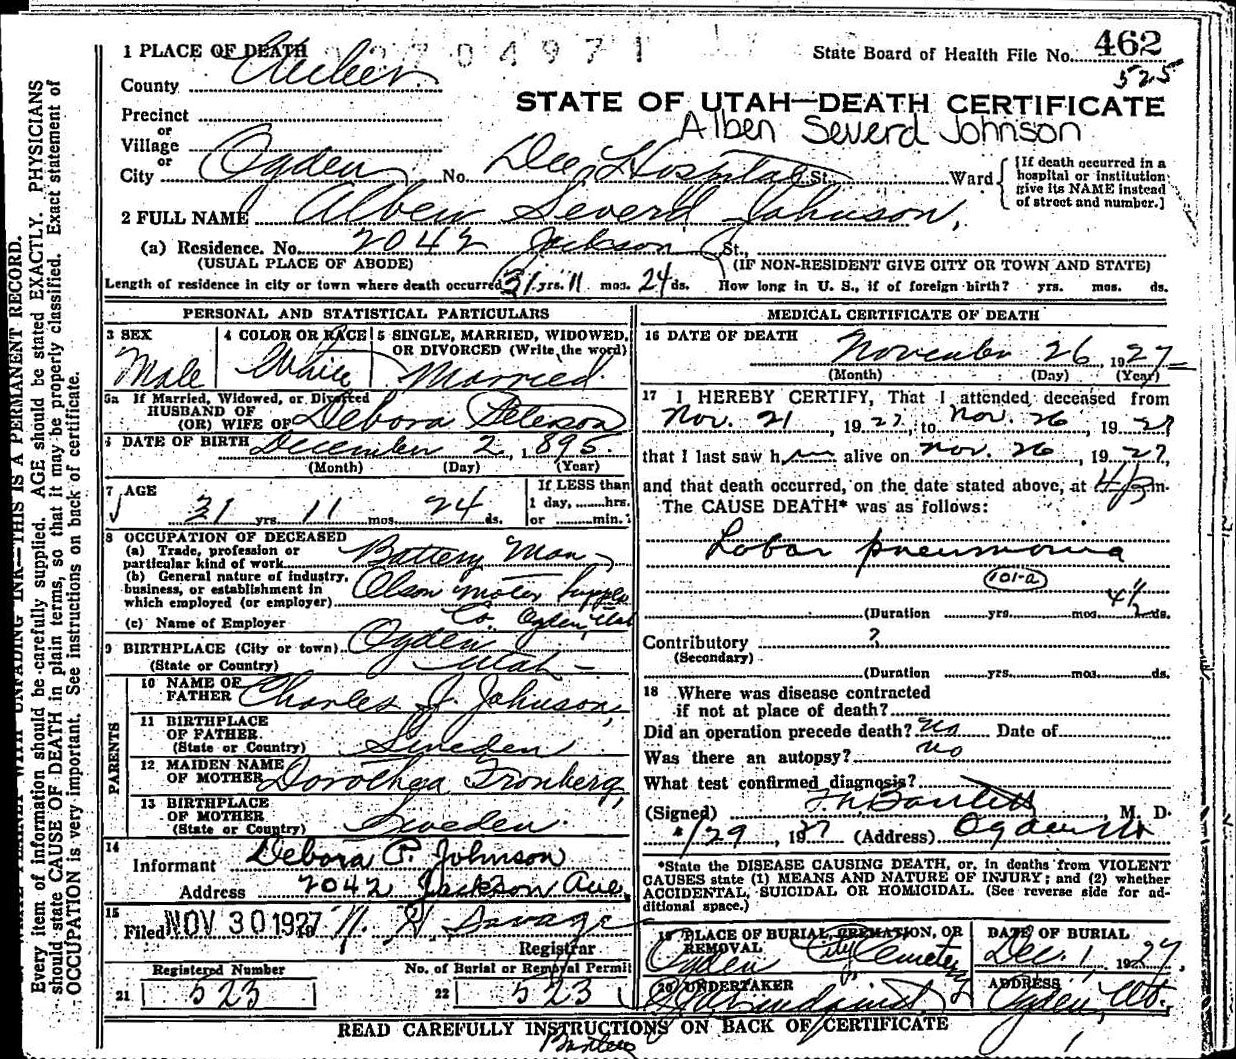 1 PLACE OF DEATH 2704971 State Board of Health File No. 462
525
County Weber
STATE OF UTAH—DEATH CERTIFICATE
Precinct
or
Village
or
Alben Severd Johnson
City Ogden No. Dee Hospital St. Ward
[If death occurred in a
hospital or institution
give its NAME instead
of street and number.]
2 FULL NAME Alben Severd Johnson,
(a) Residence. No. 2042 Jackson St.,
(USUAL PLACE OF ABODE) (IF NON-RESIDENT GIVE CITY OR TOWN AND STATE)
Length of residence in city or town where death occurred 31 yrs. 11 mos. 24 ds. How long in U. S., if of foreign birth? yrs. mos. ds.
PERSONAL AND STATISTICAL PARTICULARS
3 SEX 4 COLOR OR RACE 5 SINGLE, MARRIED, WIDOWED,
OR DIVORCED (Write the word)
Male White Married
5a If Married, Widowed, or Divorced
HUSBAND OF
(OR) WIFE OF Debora Peterson
6 DATE OF BIRTH December 2, 1895.
(Month) (Day) (Year)
7 AGE If LESS than
1 day, hrs.
31 yrs. 11 mos. 24 ds. or min.
8 OCCUPATION OF DECEASED
(a) Trade, profession or
particular kind of work Battery Man
(b) General nature of industry,
business, or establishment in
which employed (or employer) Olson Motor Supply
(c) Name of Employer Co. Ogden, Utah
9 BIRTHPLACE (City or town) Ogden
(State or Country) Utah
PARENTS
10 NAME OF
FATHER Charles J. Johnson,
11 BIRTHPLACE
OF FATHER
(State or Country) Sweden
12 MAIDEN NAME
OF MOTHER Dorothea Fronberg,
13 BIRTHPLACE
OF MOTHER
(State or Country) Sweden.
14
Informant Debora P. Johnson
Address 2042 Jackson Ave.
15
Filed NOV 30 1927 19 Savage
Registrar
Registered Number No. of Burial or Removal Permit
21 523 22 523
MEDICAL CERTIFICATE OF DEATH
16 DATE OF DEATH
November 26, 1927
(Month) (Day) (Year)
17 I HEREBY CERTIFY, That I attended deceased from
Nov. 21, 1927, to Nov. 26, 1927
that I last saw him alive on Nov. 26, 1927,
and that death occurred, on the date stated above, at m.
The CAUSE DEATH* was as follows:
Lobar pneumonia
101-a
(Duration yrs. mos. 4½ ds.
Contributory ?
(Secondary)
(Duration yrs. mos. ds.
18 Where was disease contracted
if not at place of death?
Did an operation precede death? No Date of
Was there an autopsy? no
What test confirmed diagnosis?
(Signed) Bartlett M. D.
/29, 1927 (Address) Ogden Ut
*State the DISEASE CAUSING DEATH, or, in deaths from VIOLENT
CAUSES state (1) MEANS AND NATURE OF INJURY; and (2) whether
ACCIDENTAL, SUICIDAL OR HOMICIDAL. (See reverse side for ad-
ditional space.)
19 PLACE OF BURIAL, CREMATION, OR
REMOVAL
Ogden City Cemetery
DATE OF BURIAL
Dec. 1, 1927,
20 UNDERTAKER
Lindquist
ADDRESS
Ogden, Ut.
READ CAREFULLY INSTRUCTIONS ON BACK OF CERTIFICATE
WITH UNFADING INK—THIS IS A PERMANENT RECORD.
Every item of information should be carefully supplied. AGE should be stated EXACTLY. PHYSICIANS
should state CAUSE OF DEATH in plain terms, so that it may be properly classified. Exact statement of
OCCUPATION is very important. See instructions on back of certificate.